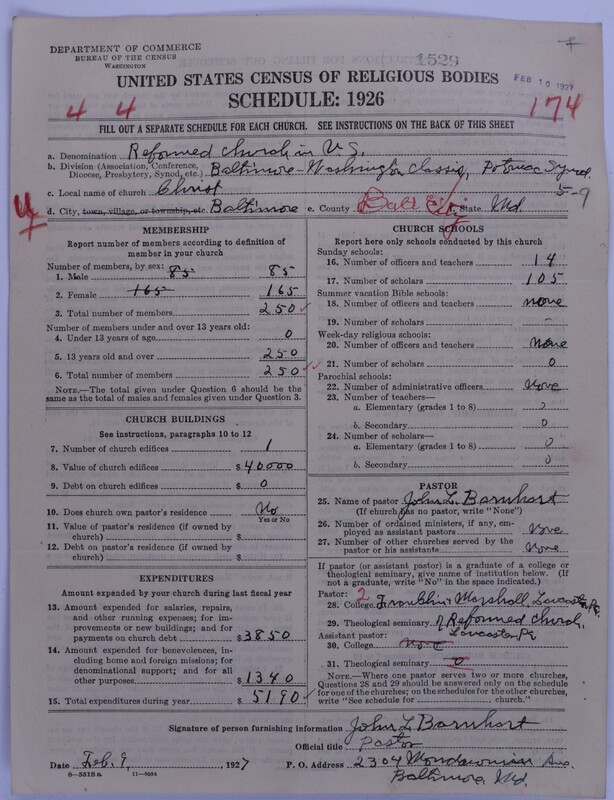 DEPARTMENT OF COMMERCE
BUREAU OF THE CENSUS
WASHINGTON
1529
FEB 10 1927
UNITED STATES CENSUS OF RELIGIOUS BODIES
SCHEDULE: 1926
4 4
174
FILL OUT A SEPARATE SCHEDULE FOR EACH CHURCH. SEE INSTRUCTIONS ON THE BACK OF THIS SHEET
a. Denomination Reformed Church in U.S.
b. Division (Association, Conference, Diocese, Presbytery, Synod, etc.) Baltimore-Washington Classis, Potomac Synod
5-9
c. Local name of church Christ
4
d. City, town, village, or township, etc. Baltimore e. County Balt City f. State Md.
MEMBERSHIP
Report number of members according to definition of
member in your church
Number of members, by sex:
1. Male 85 85
2. Female 165 165
3. Total number of members 250
Number of members under and over 13 years old:
4. Under 13 years of age 0
5. 13 years old and over 250
6. Total number of members 250
NOTE.—The total given under Question 6 should be
same as the total of males and females given under Question 3.
CHURCH BUILDINGS
See instructions, paragraphs 10 to 12
7. Number of church edifices 1
8. Value of church edifices $40000
9. Debt on church edifices $ 0
10. Does church own pastor's residence No
Yes or No
11. Value of pastor's residence (if owned by
church) $
12. Debt on pastor's residence (if owned by
church) $
EXPENDITURES
Amount expended by your church during last fiscal year
13. Amount expended for salaries, repairs,
and other running expenses; for im-
provements or new buildings; and for
payments on church debt $3850
14. Amount expended for benevolences, in-
cluding home and foreign missions; for
denominational support; and for all
other purposes $1340
15. Total expenditures during year $5190
CHURCH SCHOOLS
Report here only schools conducted by this church
Sunday schools:
16. Number of officers and teachers 14
17. Number of scholars 105
Summer vacation Bible schools:
18. Number of officers and teachers none
19. Number of scholars -
Week-day religious schools:
20. Number of officers and teachers none
21. Number of scholars 0
Parochial schools:
22. Number of administrative officers None
23. Number of teachers—
a. Elementary (grades 1 to 8)
b. Secondary 0
24. Number of scholars—
a. Elementary (grades 1 to 8) 0
b. Secondary 0
PASTOR
25. Name of pastor John L. Barnhart
(If church has no pastor, write "None")
26. Number of ordained ministers, if any, em-
ployed as assistant pastors None
27. Number of other churches served by the
pastor or his assistants None
If pastor (or assistant pastor) is a graduate of a college or
theological seminary, give name of institution below. (If
not a graduate, write "No" in the space indicated.)
Pastor: 2
28. College Franklin & Marshall, Lancaster, Pa.
29. Theological seminary of Reformed Church,
Assistant pastor: Lancaster Pa
30. College
31. Theological seminary 0
NOTE.—Where one pastor serves two or more churches,
Questions 28 and 29 should be answered only on the schedule
for one of the churches; on the schedules for the other churches,
write "See schedule for church."
Signature of person furnishing information John L Barnhart
Official title Pastor
Date Feb. 9, 1927 P. O. Address 2304 Mondawmin Ave.
Baltimore Md.
8—5518 a 11—9034